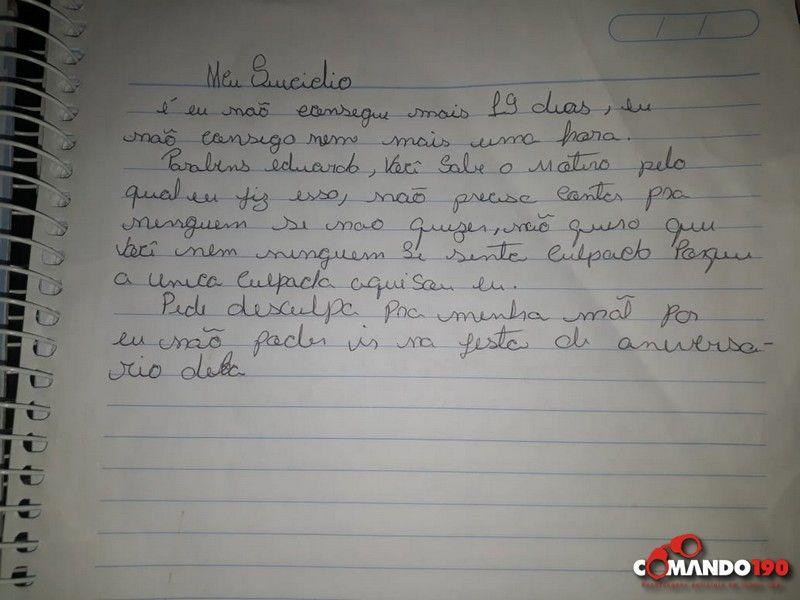 Meu Suicidio
é eu não consegue mais 19 dias, eu
não consigo nem mais uma hora.
Parabens eduardo, Você sabe o motivo pelo
qual eu fiz isso, não precisa contar pra
ninguem se nao quizer, não quero que
Você nem ninguem se sinta culpado Porque
a unica culpada aqui sou eu.
Pede desculpa pra minha mãe por
eu não poder ir na festa de aniversa-
rio dela
COMANDO190